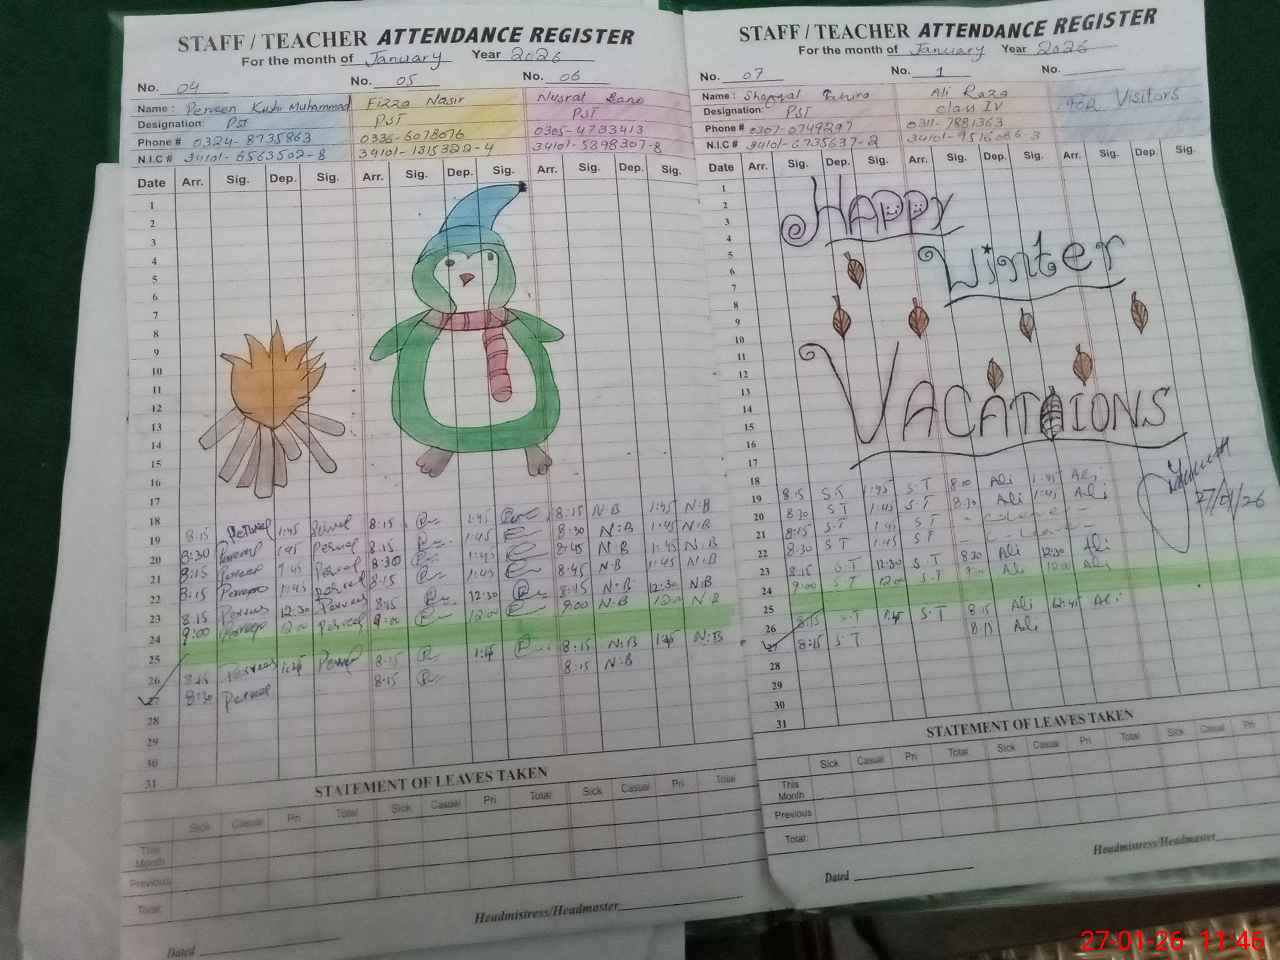 STAFF / TEACHER ATTENDANCE REGISTER
For the month of January Year 2026
No. 04 No. 05 No. 06
Name : Perveen Kushi Muhammad Fizza Nasir Nusrat Bano
Designation: PST PST PST
Phone # 0324-8735863 0336-6078676 0305-4733413
N.I.C # 34101-6563502-8 34101-1315322-4 34101-5898307-8
Date Arr. Sig. Dep. Sig. Arr. Sig. Dep. Sig. Arr. Sig. Dep. Sig.
1
2
3
4
5
6
7
8
9
10
11
12
13
14
15
16
17
18
19 8:15 1:45 8:15 1:45 8:15 N.B 1:45 N.B
20 8:30 1:45 8:15 1:45 8:30 N.B 1:45 N.B
21 8:15 1:45 8:30 1:45 8:45 N.B 1:45 N.B
22 8:15 1:45 8:15 1:45 8:45 N.B 1:45 N.B
23 8:15 12:30 8:15 12:30 8:15 N.B 12:30 N.B
24 9:00 12:00 9:00 12:00 9:00 N.B 12:00 N.B
25
26 8:15 1:45 8:15 1:45 8:15 N.B 1:45 N.B
27 8:30 8:15 8:15 N.B
28
29
30
31
STATEMENT OF LEAVES TAKEN
Sick Casual Pri Total Sick Casual Pri Total Sick Casual Pri Total
This Month
Previous
Total:
Headmistress/Headmaster
Dated
STAFF / TEACHER ATTENDANCE REGISTER
For the month of January Year 2026
No. 07 No. 1 No.
Name : Tahira Ali Raza For Visitors
Designation: PST class IV
Phone # 0307-0749297 0311-7881363
N.I.C # 34101-6735637-2 34101-9516086-3
Date Arr. Sig. Dep. Sig. Arr. Sig. Dep. Sig. Arr. Sig. Dep. Sig.
1
2
3
4
5
6
7
8
9
10
11
12
13
14
15
16
17
18
19
20
21
22
23
24
25
26
27
28
29
30
31
HAPPY
Winter
VACATIONS
8:15 S.T 1:45 S.T 8:00 Ali 1:45 Ali
8:30 S T 1:45 S.T 8:30 Ali 1:45 Ali
8:15 S.T 1:45 S T
8:30 S T 1:45 S T
8:15 S.T 12:30 S.T 8:30 Ali 12:30 Ali
9:00 S.T 12:00 S.T 9:00 Ali 12:00 Ali
8:15 S.T 1:45 S.T 8:15 Ali 12:45 Ali
8:15 S T 8:15 Ali
27/01/26
STATEMENT OF LEAVES TAKEN
Sick Casual Pri Total Sick Casual Pri Total Sick Casual Pri
This Month
Previous
Total:
Headmistress/Headmaster
Dated
27-01-26 11:46